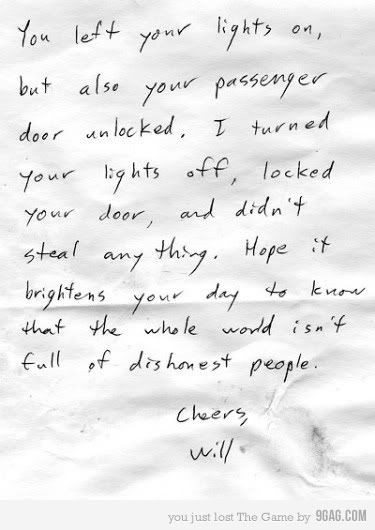 You left your lights on,
but also your passenger
door unlocked. I turned
your lights off, locked
your door, and didn't
steal anything. Hope it
brightens your day to know
that the whole world isn't
full of dishonest people.
Cheers,
Will
you just lost The Game by 9GAG.COM